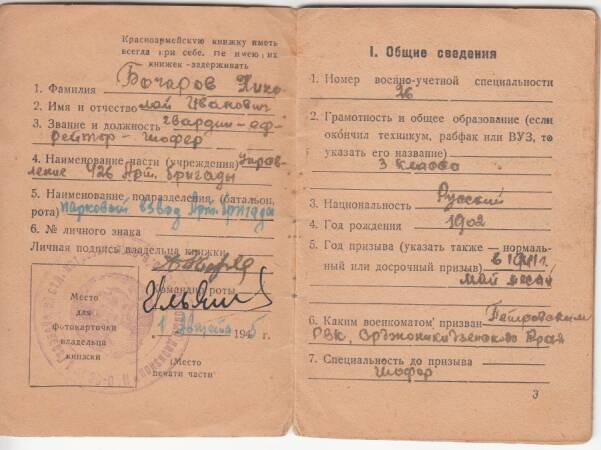 Красноармейскую книжку иметь
всегда при себе. Не имеющих
книжек -задерживать
1. Фамилия Бочаров Нико-
2. Имя и отчество лай Иванович
3. Звание и должность гвардии-еф-
рейтор- шофер
4. Наименование части (учреждения) управ-
ление 426 Арт. бригады
5. Наименование подразделения (батальон,
рота) парковый взвод Арт. бригады
6. № личного знака
Личная подпись владельца книжки
Командир роты
1 августа 1945 г.
Место
для
фотокарточки
владельца
книжки
(Место
печати части)
I. Общие сведения
1. Номер военно-учетной специальности
26
2. Грамотность и общее образование (если
окончил техникум, рабфак или ВУЗ, то
указать его название)
3 класса
3. Национальность Русский
4. Год рождения 1902
5. Год призыва (указать также — нормаль-
ный или досрочный призыв) в 1941 г.
май месяц
6. Каким военкоматом призван Петровским
РВК, Орджоникидзевского Края
7. Специальность до призыва
Шофер
3